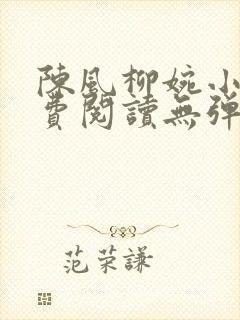 陳風柳婉小
費閱讀無彈
范荣謙